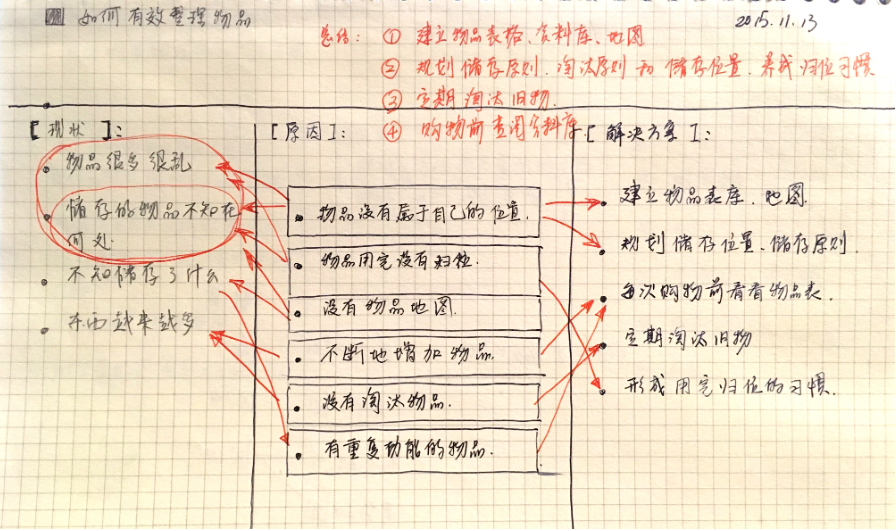 如何有效整理物品
2015.11.13
总结: ① 建立物品表格、资料库、地图
② 规划储存原则、淘汰原则和储存位置、养成归位习惯
③ 定期淘汰旧物.
④ 购物前查阅资料库.
[现状]:
• 物品很多很乱
• 储存的物品不知在
何处.
• 不知储存了什么
• 东西越来越多
[原因]:
• 物品没有属于自己的位置.
• 物品用完没有归位.
• 没有物品地图.
• 不断地增加物品.
• 没有淘汰物品.
• 有重复功能的物品.
[解决方案]:
• 建立物品表库、地图.
• 规划储存位置、储存原则.
• 每次购物前看看物品表.
• 定期淘汰旧物
• 形成用完归位的习惯.